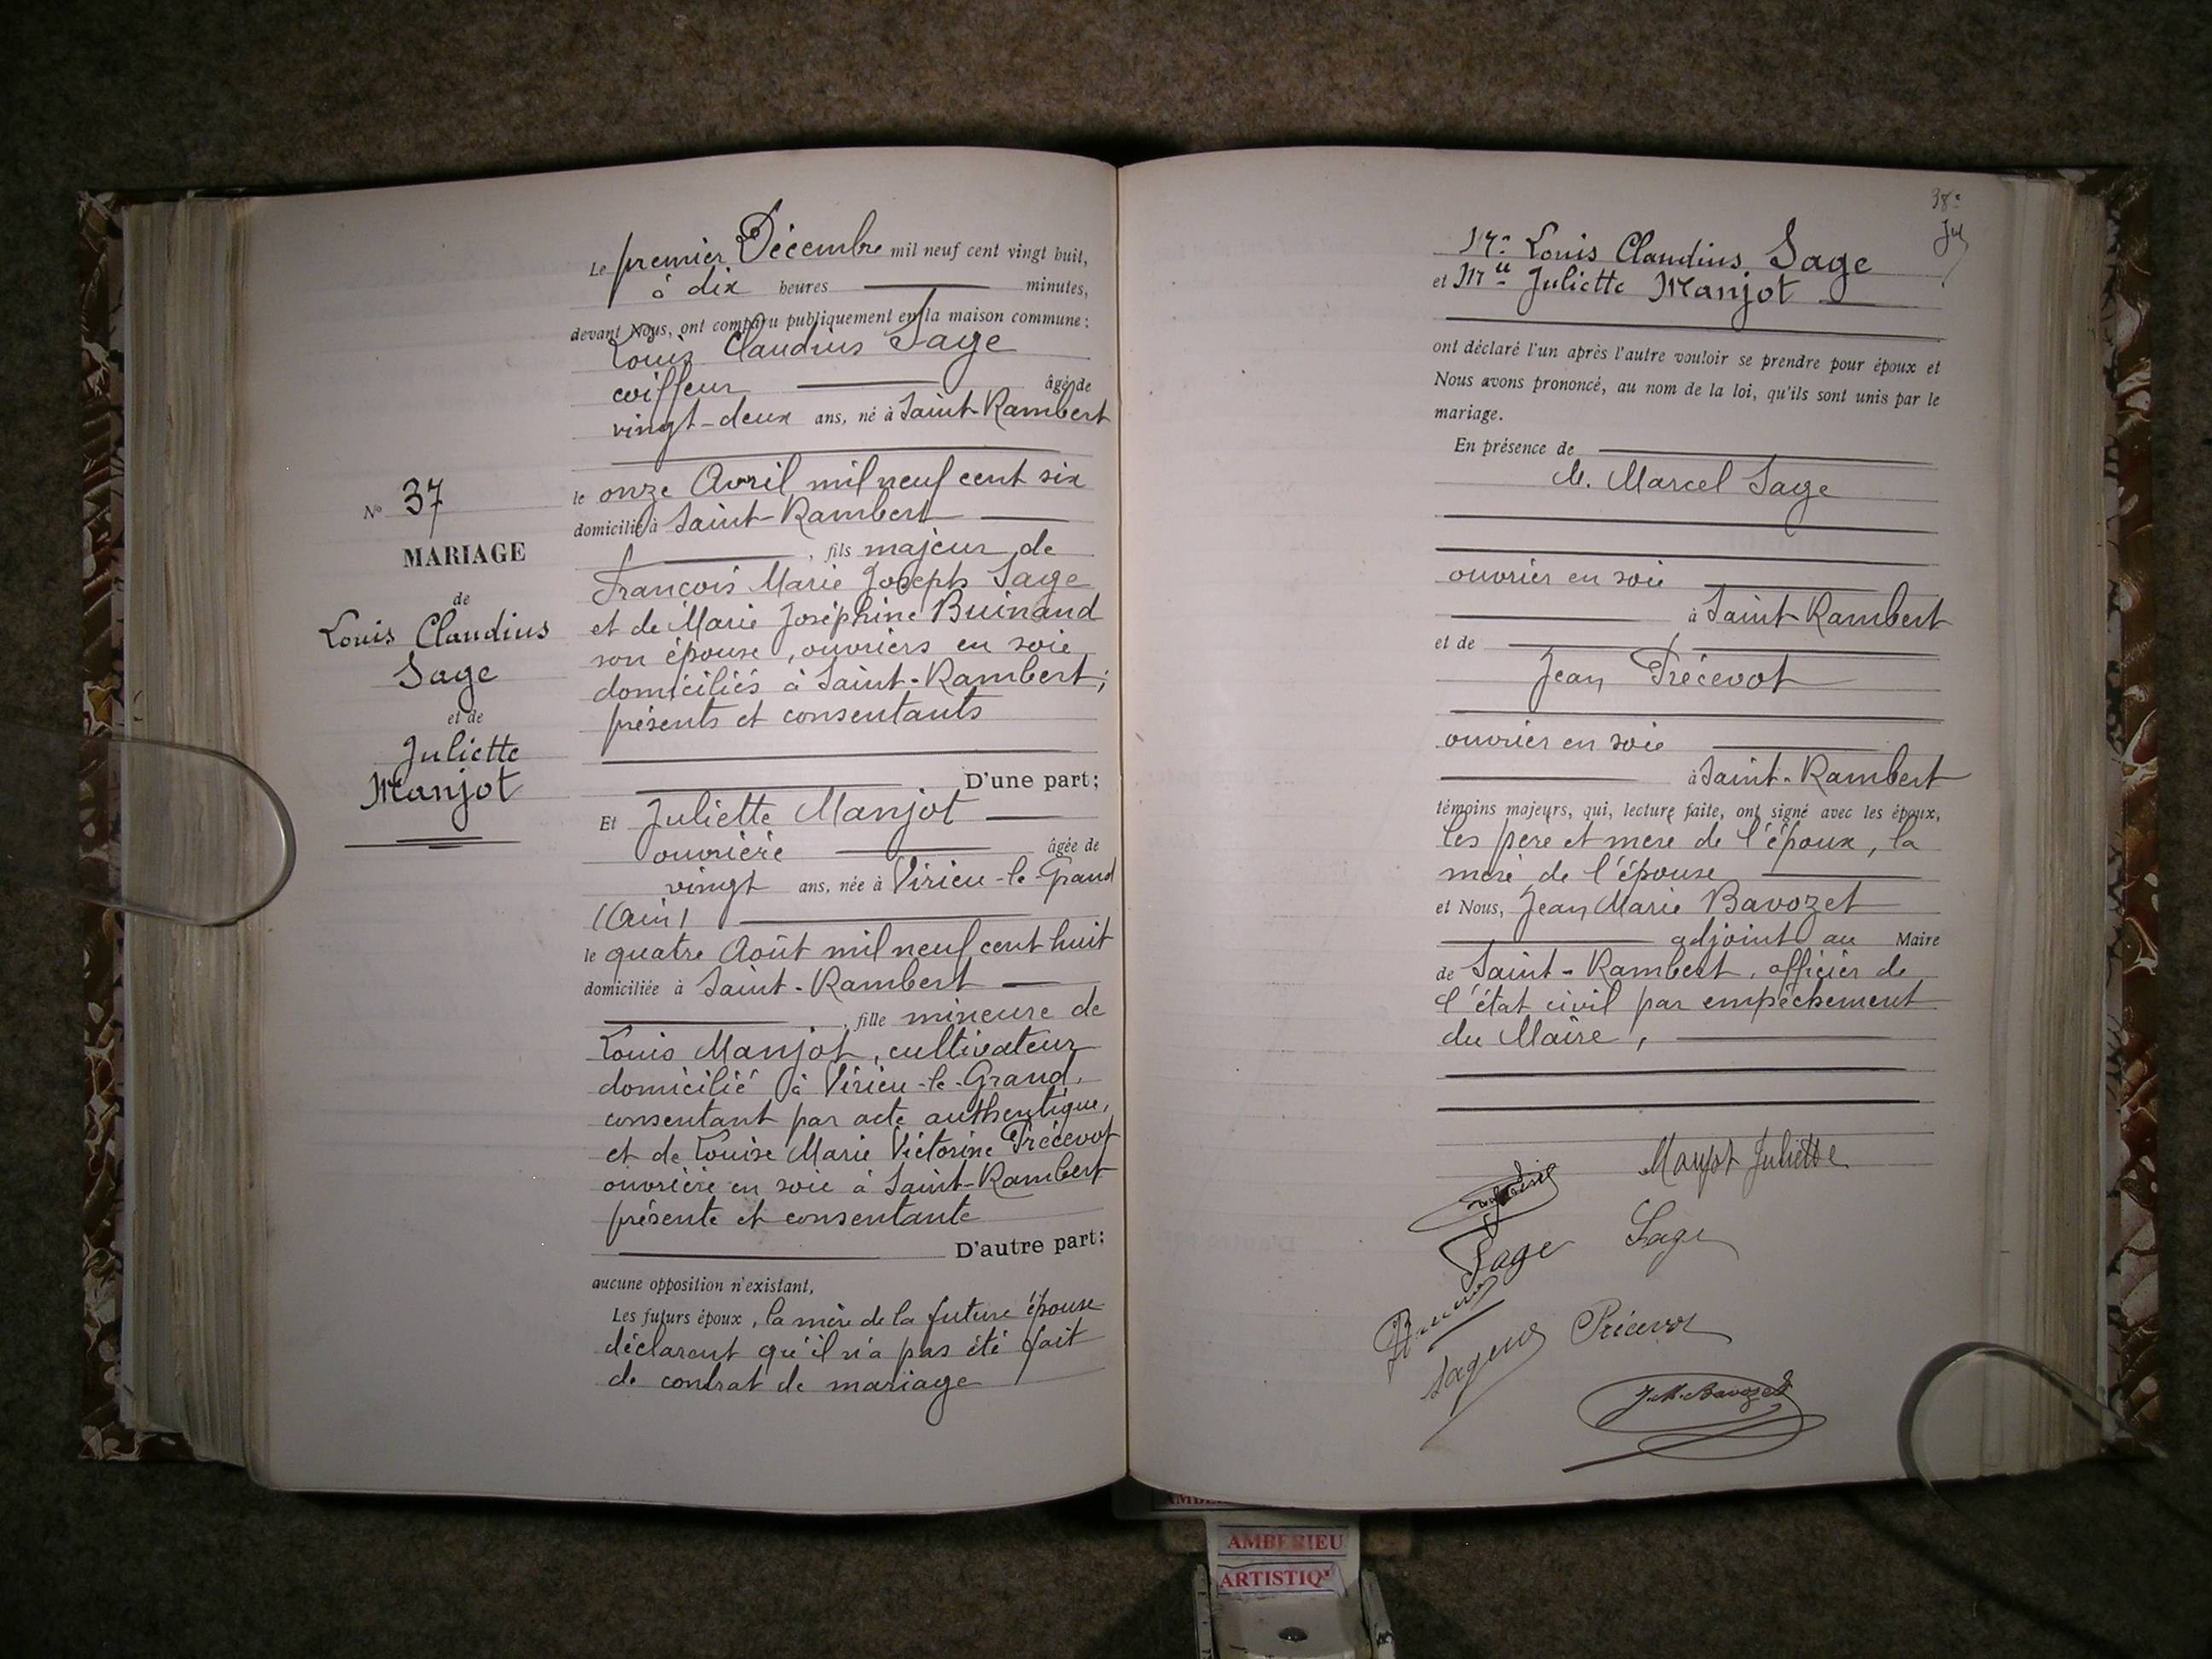 Le premier Décembre mil neuf cent vingt huit,
à dix heures minutes,
devant Nous, ont comparu publiquement en la maison commune :
Louis Claudius Sage
coiffeur âgé de
vingt-deux ans, né à Saint-Rambert
le onze Avril mil neuf cent six
domicilié à Saint-Rambert
, fils majeur de
François Marie Joseph Sage
et de Marie Joséphine Buinand
son épouse, ouvriers en soie
domiciliés à Saint-Rambert ;
présents et consentants
D'une part ;
N° 37
MARIAGE
de
Louis Claudius
Sage
et de
Juliette
Manjot
Et Juliette Manjot
ouvrière âgée de
vingt ans, née à Virieu-le-Grand
(Ain)
le quatre Août mil neuf cent huit
domiciliée à Saint-Rambert
, fille mineure de
Louis Manjot, cultivateur
domicilié à Virieu-le-Grand,
consentant par acte authentique,
et de Louise Marie Victorine Précevot
ouvrière en soie à Saint-Rambert
présente et consentante
D'autre part :
aucune opposition n'existant,
Les futurs époux, la mère de la future épouse
déclarent qu'il n'a pas été fait
de contrat de mariage
38
Mr Louis Claudius Sage
et Mlle Juliette Manjot
ont déclaré l'un après l'autre vouloir se prendre pour époux et
Nous avons prononcé, au nom de la loi, qu'ils sont unis par le
mariage.
En présence de
M. Marcel Sage
ouvrier en soie
à Saint-Rambert
et de
Jean Précevot
ouvrier en soie
à Saint-Rambert
témoins majeurs, qui, lecture faite, ont signé avec les époux,
les père et mère de l'époux, la
mère de l'épouse
et Nous, Jean Marie Bavozet
adjoint au Maire
de Saint-Rambert, officier de
l'état civil par empêchement
du Maire,
Manjot Juliette
Sage
Sage
Précevot
J.M. Bavozet
AMBERIEU
ARTISTIQ